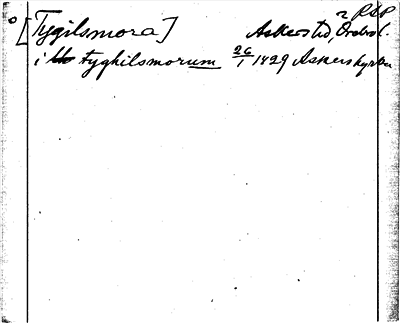 ~ RSP
° [Tygilsmora] Askersted, Örebro l.
i tyghilsmorum 26/1 1429 Askerskyrka